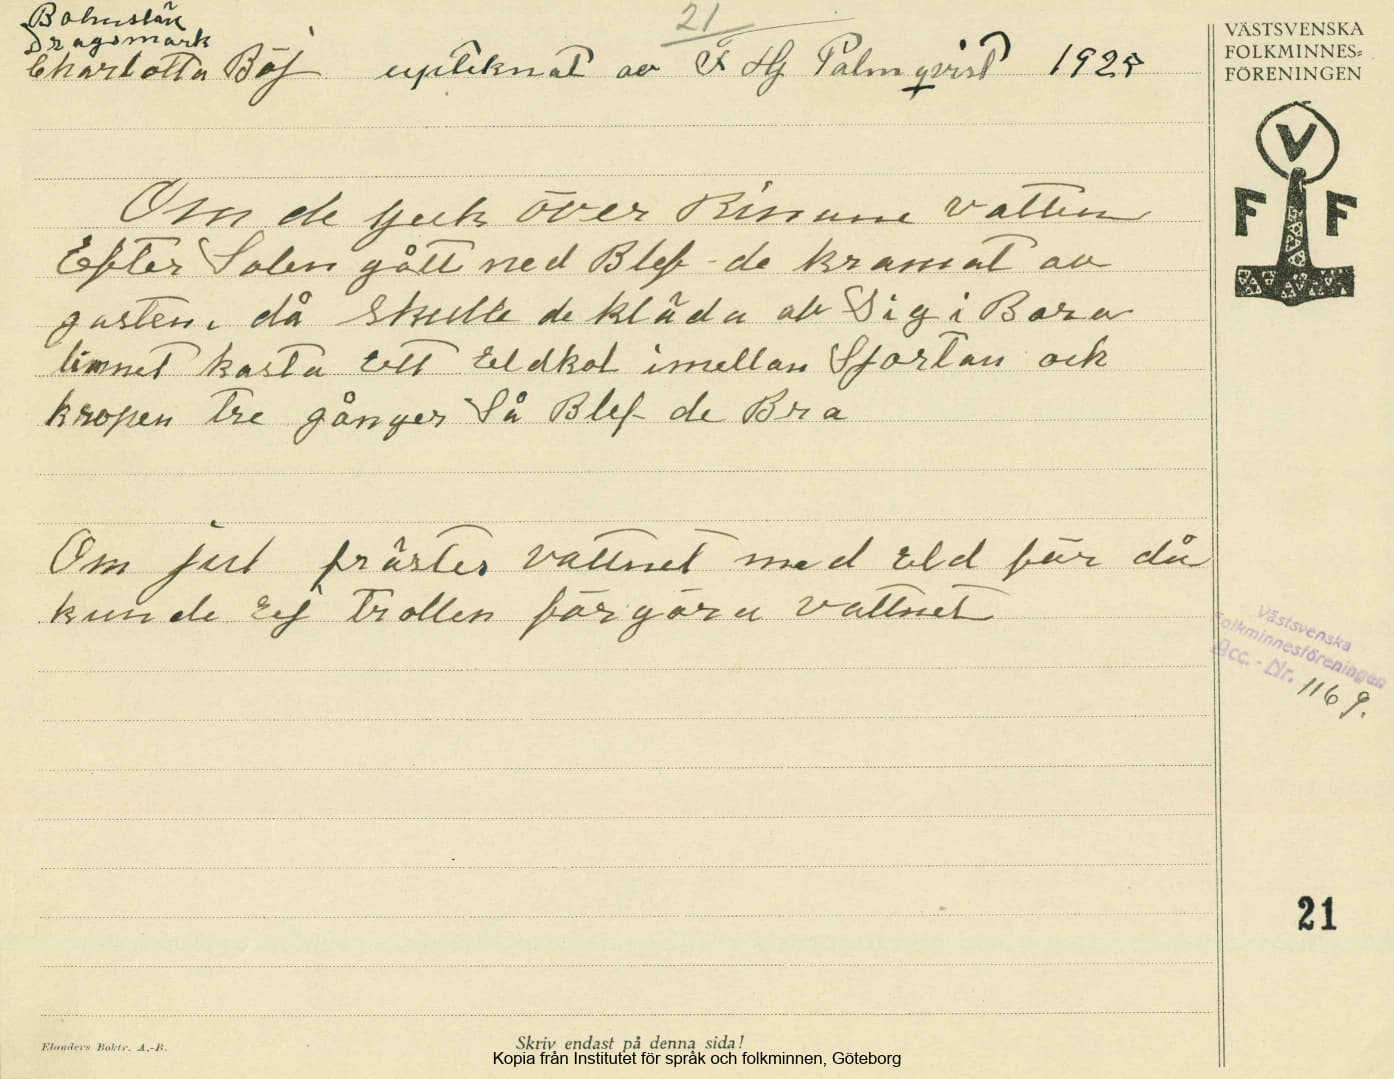 21
Bohuslän
Dragsmark
Charlotta Böj upteknat av F Hj Palmqvist 1925
Om de geck över Rinnne vatten
Efter Solen gått ned Blef de kramat av
gasten, då skulle de kläda av Sig i Bara
linnet kasta ett Eldkol imellan Sjortan och
kropen tre gånger Så Blef de Bra
Om jul frästes vattnet med Eld för då
kunde Ej trollen förgöra vattnet
VÄSTSVENSKA
FOLKMINNES=
FÖRENINGEN
V
F F
Västsvenska
Folkminnesföreningen
Acc. - Nr. 1169.
21
Elanders Boktr. A.-B.
Skriv endast på denna sida!
Kopia från Institutet för språk och folkminnen, Göteborg